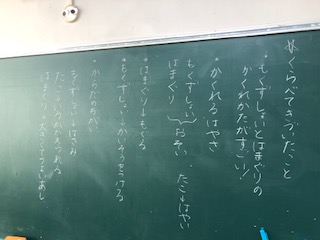 くらべてきづいたこと
・もくずしょいとはまぐりの
かくれかたがすごい!
・かくれるはやさ
もくずしょい
はまぐり
おそい、たこ→はやい
・はまぐり→もぐる
・もくずしょい→かいそうをつける
・からだのちがい
もくずしょい→はさみ
たこ→いろがかえられる
はまぐり→大きくてつよいあし